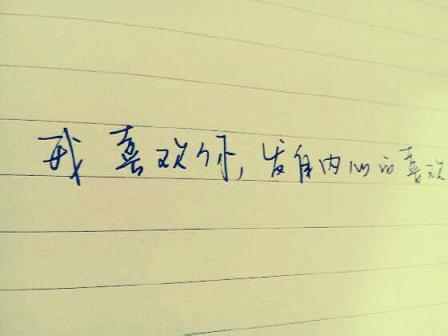 我喜欢你,发自内心的喜欢